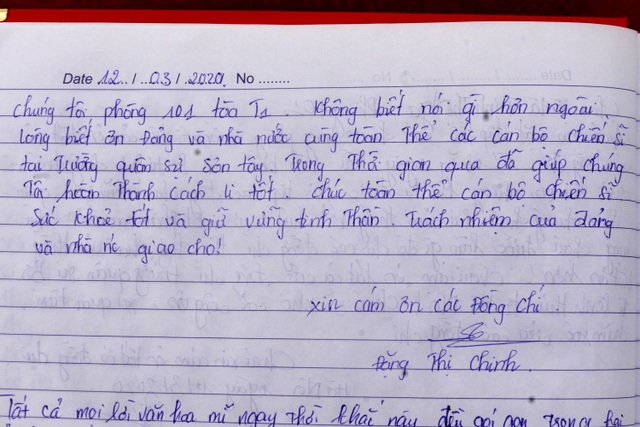 Date 12../..03./.2020. No ........
Chúng tôi phòng 101 tòa T1. Không biết nói gì hơn ngoài
lòng biết ơn Đảng và nhà nước cùng toàn thể các cán bộ chiến sĩ
tại Trường quân sự Sơn tây. Trong Thời gian qua đã giúp chúng
Tôi hoàn Thành cách li tốt. Chúc toàn thể cán bộ chiến sĩ
Sức khoẻ tốt và giữ vững tinh Thần. Trách nhiệm của đảng
và nhà nc giao cho!
xin cảm ơn các Đồng chí.
Đặng Thị Chinh.
Tất cả mọi lời văn hoa mĩ ngay Thời khắc này đều gói gọn trong hai